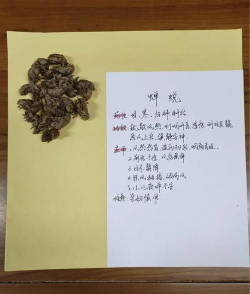 蝉蜕
性味:甘,寒,归肺、肝经
功效:疏散风热,利咽开音,透疹,明目退翳,
息风止痉
应用:1.风热感冒,温病初起,咽痛音哑
2.麻疹不透,风疹瘙痒
3.目赤翳障
5.小儿夜啼不安
孕妇慎用